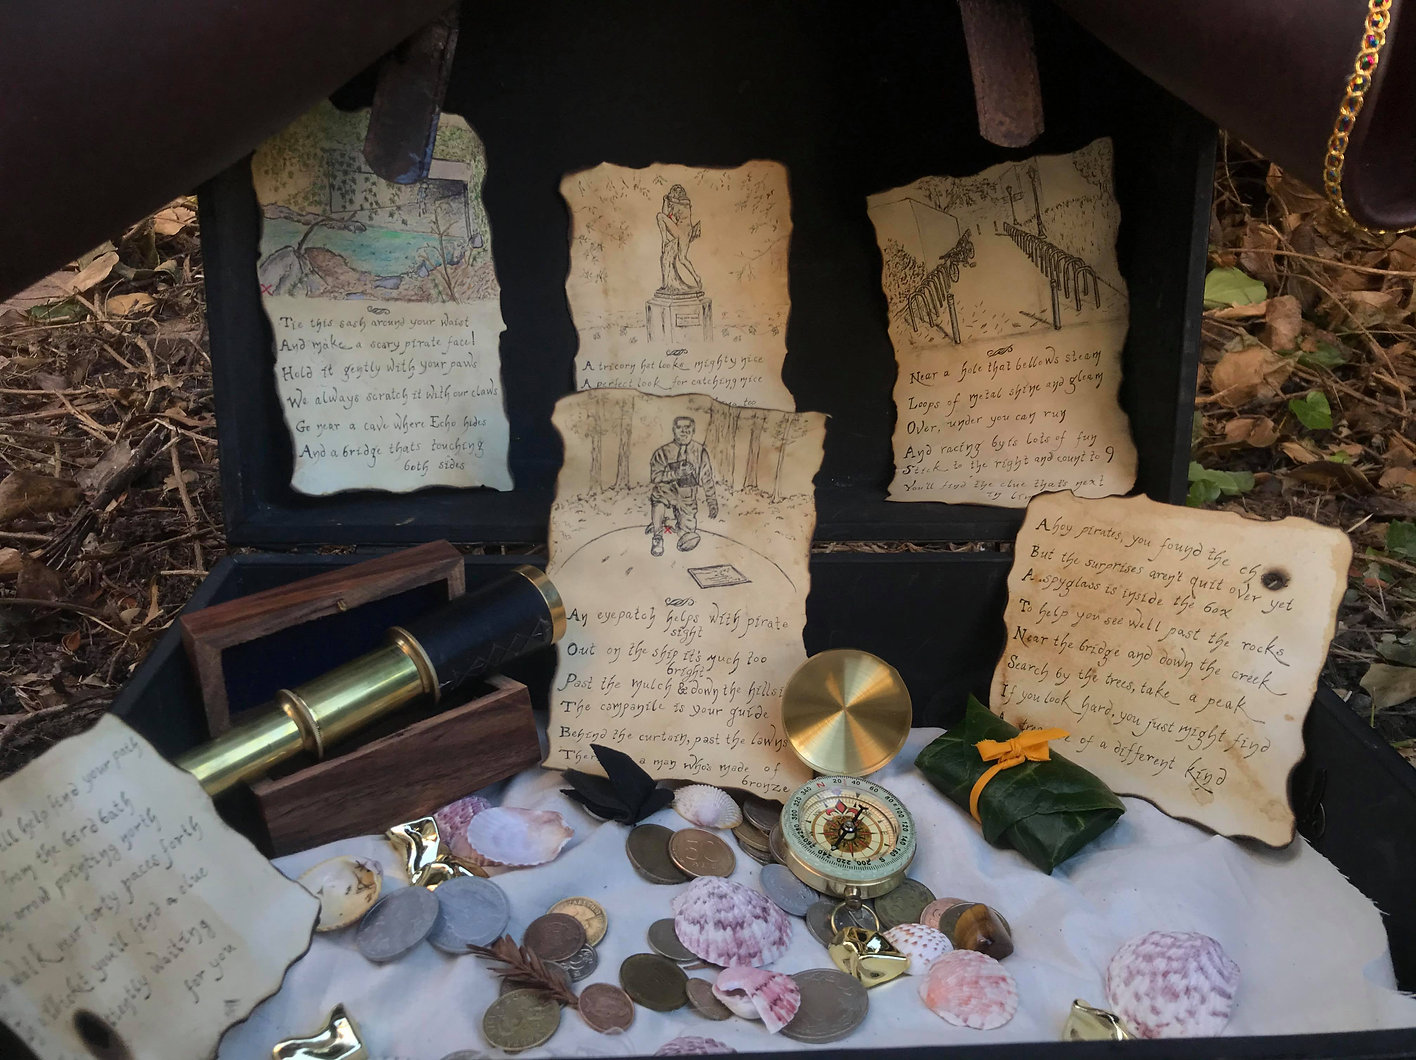 Tie this sash around your waist
And make a scary pirate face!
Hold it gently with your paws
We always scratch it with our claws
Go near a cave where Echo hides
And a bridge thats touching
both sides
A tricorn hat looks mighty nice
A perfect look for catching mice
too
Near a hole that bellows steam
Loops of metal shine and gleam
Over, under you can run
And racing by is lots of fun
Stick to the right and count to 9
You'll find the clue thats next
in
An eyepatch helps with pirate
sight
Out on the ship it's much too
bright
Past the mulch & down the hillsi
The companile is your guide
Behind the curtain, past the lawns
Ther a man who's made of
bronze
Ahoy pirates, you found the ch
But the surprises aren't quit over yet
A spyglass is inside the box
To help you see well past the rocks
Near the bridge and down the creek
Search by the trees, take a peak
If you look hard, you just might find
A of a different kind
will help find your path
from the bird bath
arrow pointing north
walk our forty paces forth
you'll find a clue
waiting
for you
N 20 40 60 80 100 120 140 160 S 200 220